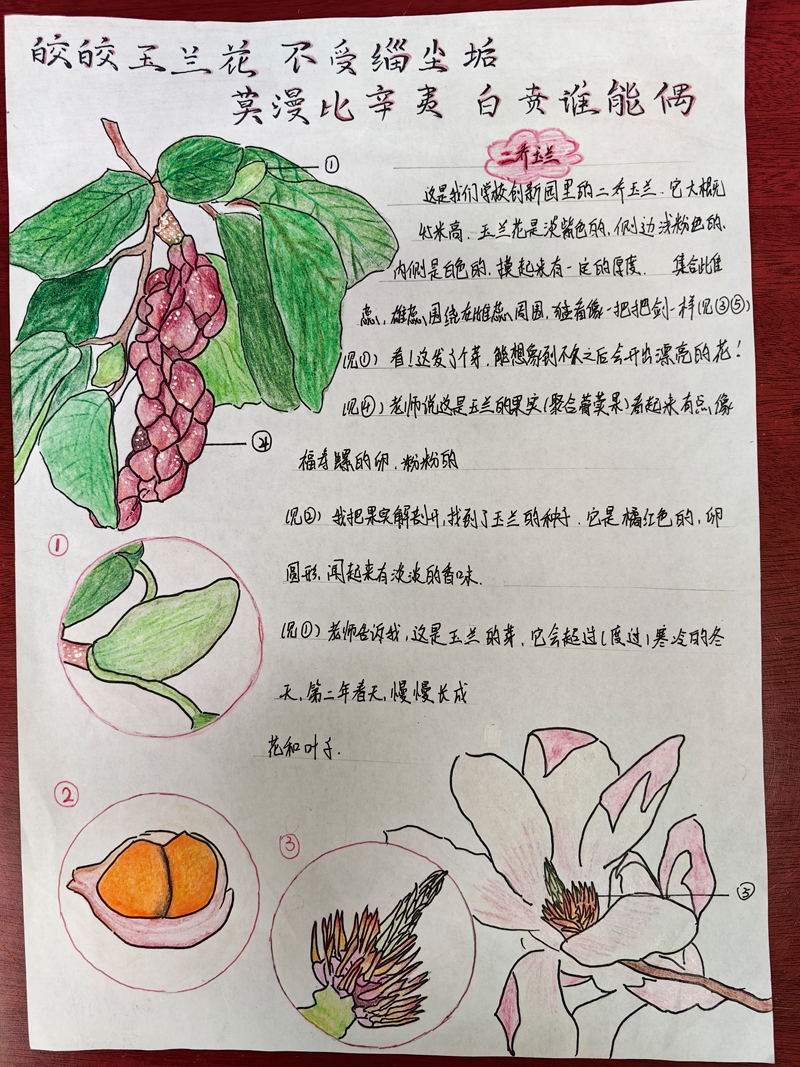 皎皎玉兰花 不受缁尘垢
莫漫比辛夷 白贲谁能偶
二乔玉兰
①
这是我们学校创新园里的二乔玉兰.它大概死
4.5米高.玉兰花是淡紫色的,侧边浅粉色的.
内侧是白色的.摸起来有一定的厚度. 集合此隹
蕊,雄蕊围绕在雌蕊周围,猛看像一把把剑一样(见③⑤)
(见①)看!这发了个芽.能想象到不久之后会开出漂亮的花!
(见④)老师说这是玉兰的果实(聚合蓇葖果)看起来有点像
④
福寿螺的卵.粉粉的
(见②)我把果实解剖开,找到了玉兰的种子.它是橘红色的,卵
圆形.闻起来有淡淡的香味.
(见①)老师告诉我,这是玉兰的芽.它会超过(度过)寒冷的冬
天,第二年春天,慢慢长成
花和叶子.
①
②
③
⑤